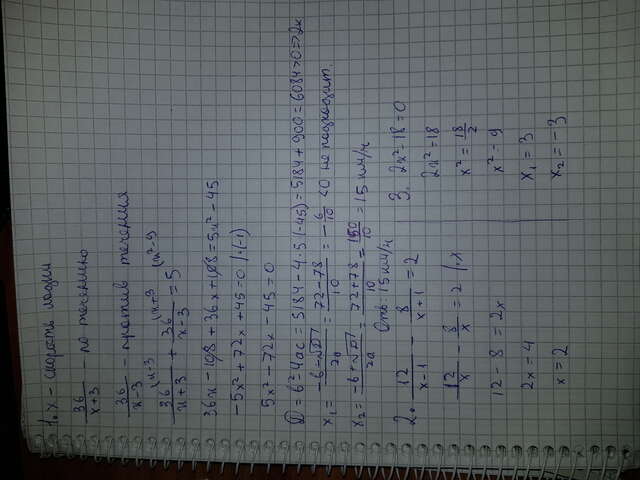 1. x – скорость лодки
36/(x+3) – по течению
36/(x-3) – против течения
36/(x+3) (x-3 + 36/(x-3) (x+3 = 5 (x²-9)
36x - 108 + 36x + 108 = 5x² - 45
-5x² + 72x + 45 = 0 |·(-1)
5x² - 72x - 45 = 0
D = b² - 4ac = 5184 - 4·5·(-45) = 5184 + 900 = 6084 > 0 => 2x
x₁ = (-b-√D)/2a = (72-78)/10 = -6/10 < 0 не подходит.
x₂ = (-b+√D)/2a = (72+78)/10 = 150/10 = 15 км/ч
Отв: 15 км/ч
2. 12/(x-1) - 8/(x+1) = 2
12/x - 8/x = 2 |·x
12 - 8 = 2x
2x = 4
x = 2
3. 2x² - 18 = 0
2x² = 18
x² = 18/2
x² = 9
x₁ = 3
x₂ = -3